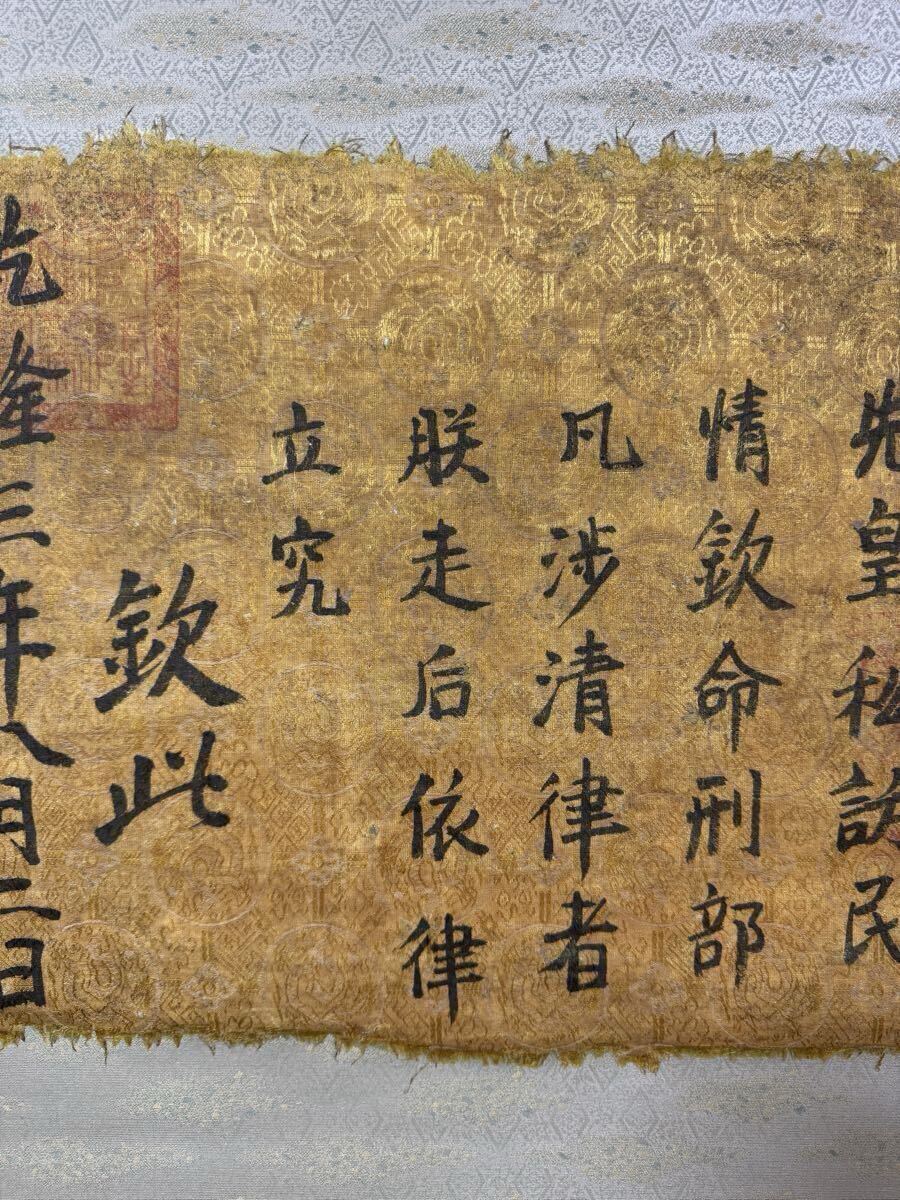 先皇私訪民
情欽命刑部
凡涉清律者
朕走后依律
立究
欽此
乾隆三年八月二日